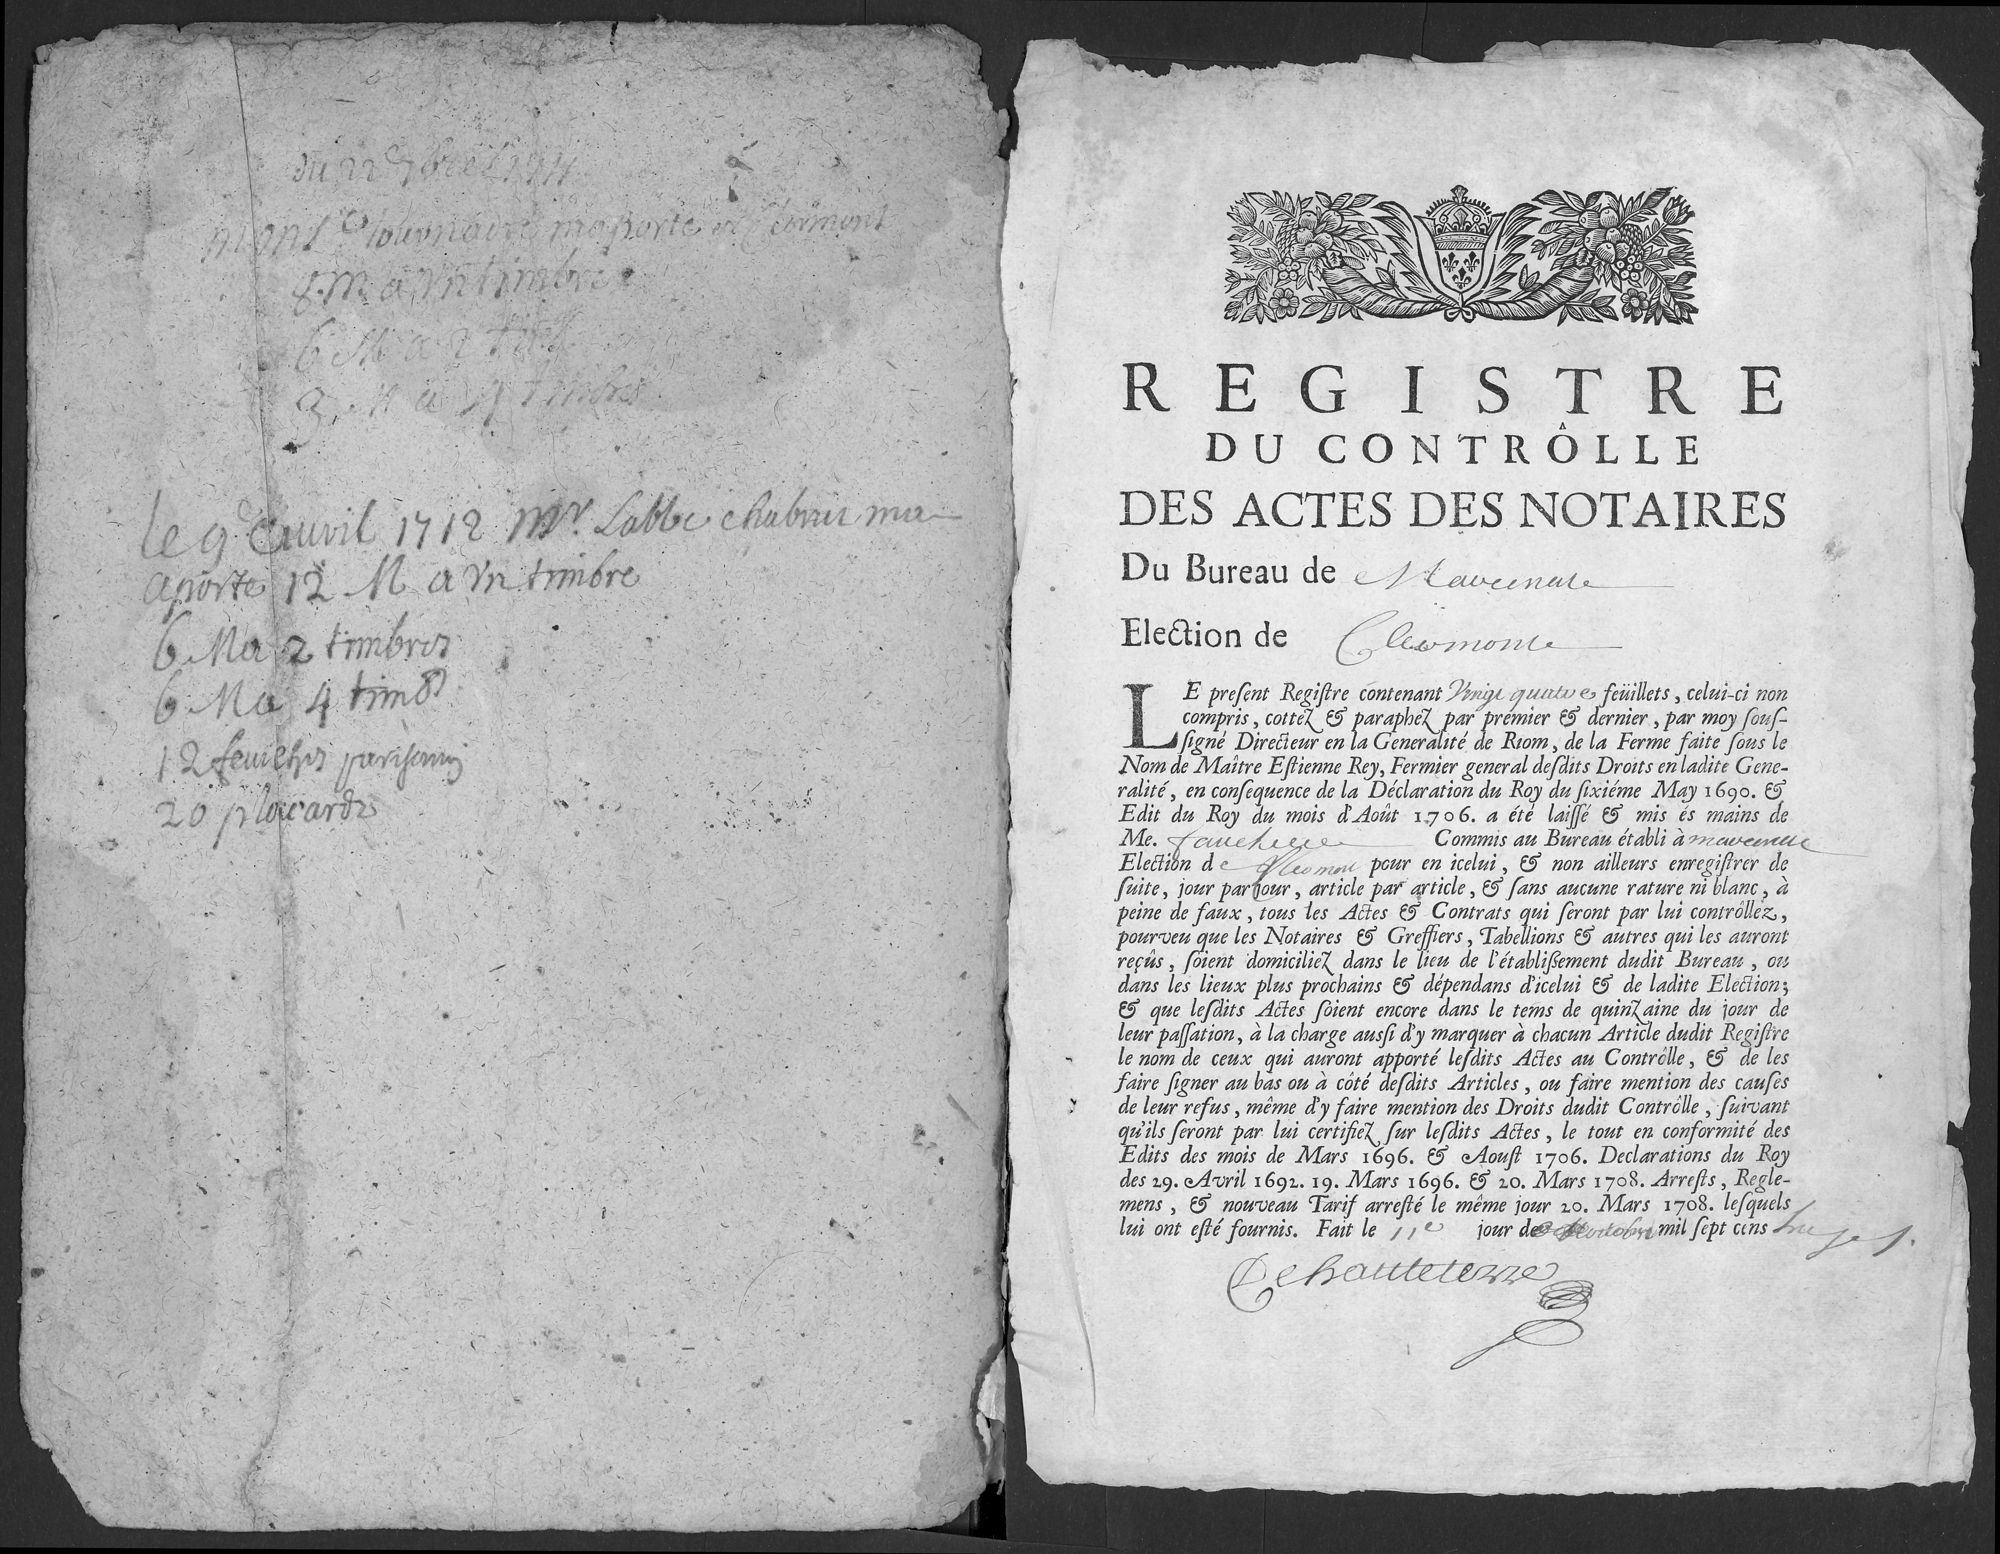 du 22 9bre 1711
mons Tournaire maporte de Clermont
8 M a vn timbre
6 M a 2 tim
3 M a 4 timbres
le 9e auril 1712 Mr. Labbe chabrus ma
aporte 12 M a vn timbre
6 M a 2 timbres
6 M a 4 timb
12 feuilles
20 placards
REGISTRE
DU CONTRÔLLE
DES ACTES DES NOTAIRES
Du Bureau de
Election de Clermont
LE preſent Regiſtre contenant Vingt quatre feüillets, celui-ci non
compris, cottez & paraphez par premier & dernier, par moy ſouſ-
ſigné Directeur en la Generalité de Riom, de la Ferme faite ſous le
Nom de Maître Eſtienne Rey, Fermier general deſdits Droits en ladite Gene-
ralité, en conſequence de la Déclaration du Roy du ſixiéme May 1690. &
Edit du Roy du mois d'Août 1706. a été laiſſé & mis és mains de
Me. Commis au Bureau établi à
Election de Clermont pour en icelui, & non ailleurs enregiſtrer de
ſuite, jour par jour, article par article, & ſans aucune rature ni blanc, à
peine de faux, tous les Actes & Contrats qui ſeront par lui contrôllez,
pourveu que les Notaires & Greffiers, Tabellions & autres qui les auront
reçûs, ſoient domiciliez dans le lieu de l'établißement dudit Bureau, ou
dans les lieux plus prochains & dépendans d'icelui & de ladite Election;
& que leſdits Actes ſoient encore dans le tems de quinzaine du jour de
leur paſſation, à la charge auſſi d'y marquer à chacun Article dudit Regiſtre
le nom de ceux qui auront apporté leſdits Actes au Contrôlle, & de les
faire ſigner au bas ou à côté deſdits Articles, ou faire mention des cauſes
de leur refus, même d'y faire mention des Droits dudit Contrôlle, ſuivant
qu'ils ſeront par lui certifiez ſur leſdits Actes, le tout en conformité des
Edits des mois de Mars 1696. & Aouſt 1706. Declarations du Roy
des 29. Avril 1692. 19. Mars 1696. & 20. Mars 1708. Arreſts, Regle-
mens, & nouveau Tarif arreſté le même jour 20. Mars 1708. leſquels
lui ont eſté fournis. Fait le 11e jour de mil ſept cens
Dehauteterre